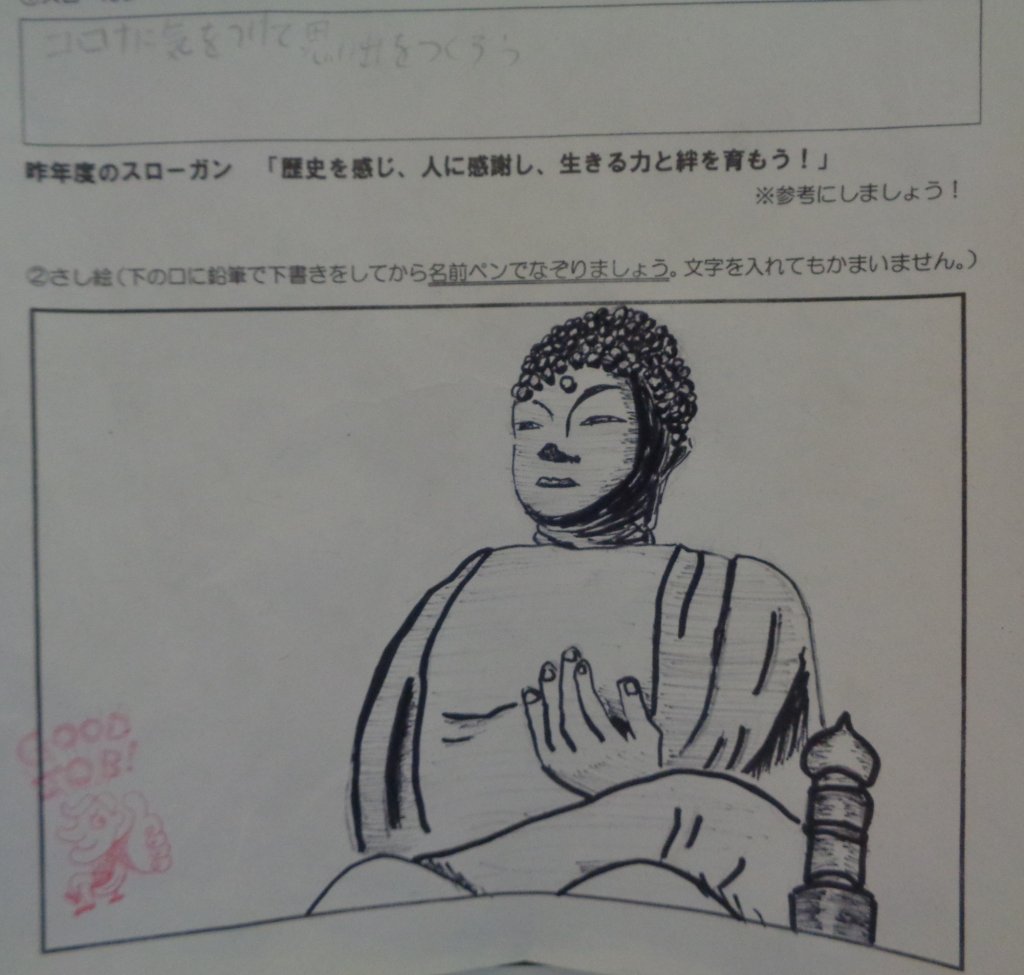 コロナに気をつけて思い出をつくろう
昨年度のスローガン 「歴史を感じ、人に感謝し、生きる力と絆を育もう！」
※参考にしましょう！
②さし絵(下の口に鉛筆で下書きをしてから名前ペンでなぞりましょう。文字を入れてもかまいません。)
GOOD
JOB!